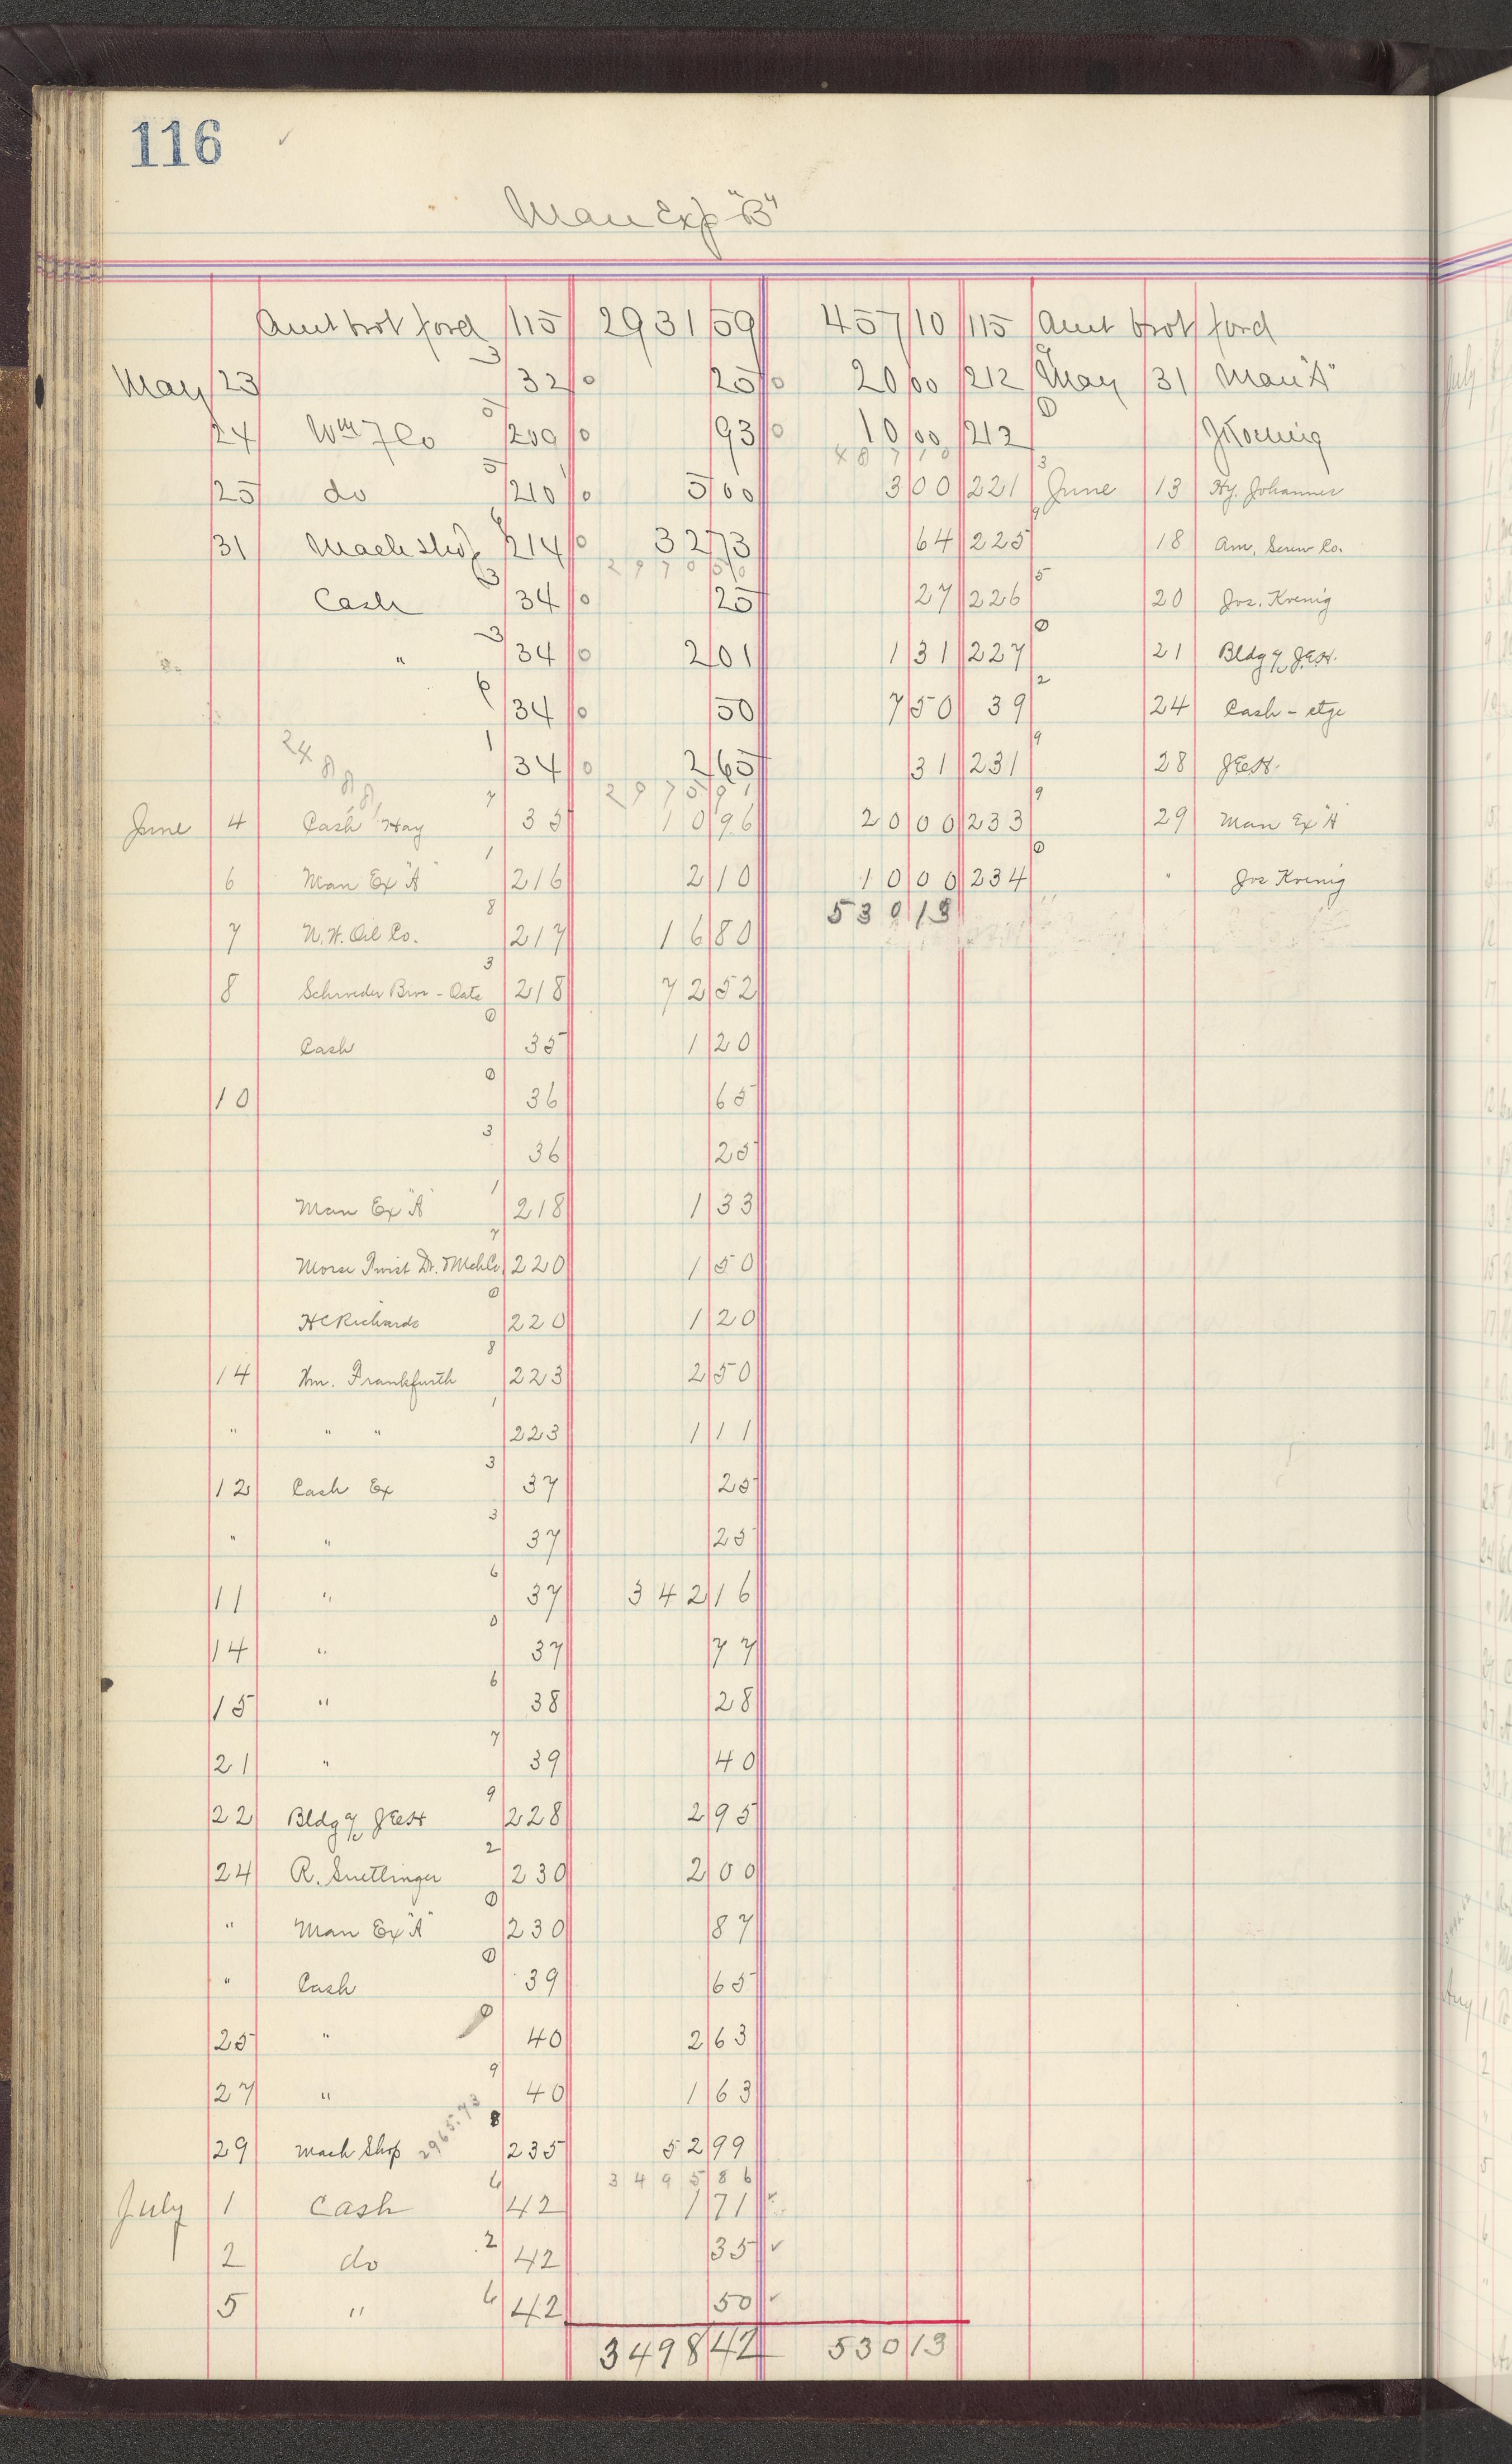 116
Man Exp "B"
Amt brot ford 115 2931 59 457 10 115 Amt brot ford
May 23 3 32 0 25 0 20 00 212 May 31 Man "A"
24 Wm F Co 0 209 0 93 0 10 00 212 0 J Koenig
487 10
25 do 5 210 0 5 00 3 00 221 3 June 13 Hy. Johannes
31 Mach Shop 6 214 0 32 73 64 225 9 18 Am. Screw Co.
2970 50
Cash 3 34 0 25 27 226 5 20 Jos. Koenig
" 3 34 0 2 01 1 31 227 0 21 Bldg % J.E.H.
6 34 0 50 7 50 39 2 24 Cash - etge
1 34 0 2 65 31 231 9 28 JEH.
24 8 8 8
2975 91
June 4 Cash Hay 7 35 10 96 20 00 233 9 29 Man Ex "A"
6 Man Ex "A" 1 216 2 10 10 00 234 0 " Jos Koenig
530 13
7 N.W. Oil Co. 8 217 16 80
8 Schroeder Bros - Oats 3 218 72 52
Cash 0 35 1 20
10 0 36 65
3 36 25
Man Ex "A" 1 218 1 33
Morse Twist Dr. & Mch Co. 7 220 1 50
H C Richards 0 220 1 20
14 Wm. Frankfurth 8 223 2 50
" " " 1 223 1 11
12 Cash Ex 3 37 25
" " 3 37 25
11 " 6 37 342 16
14 " 0 37 77
15 " 6 38 28
21 " 7 39 40
22 Bldg % JEH 9 228 2 95
24 R. Suettinger 2 230 2 00
" Man Ex "A" 0 230 87
" Cash 0 39 65
25 " 0 40 2 63
27 " 9 40 1 63
29 Mach Shop 2965.73 8 235 52 99
3495 86
July 1 Cash 6 42 1 71 ✓
2 do 2 42 35 ✓
5 " 6 42 50 ✓
3498 42 530 13